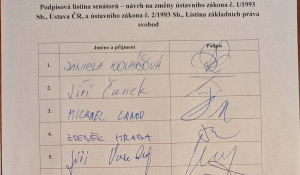 Podpisová listina senátorů – návrh na změny ústavního zákona č. 1/1993
Sb., Ústava ČR, a ústavního zákona č. 2/1993 Sb., Listina základních práv a
svobod
Jméno a příjmení Podpis
1. DANIELA KOVÁŘOVÁ
2. Jiří Čunek
3. MICHAEL CANOV
4. ZDENĚK HRABA
5. Jiří